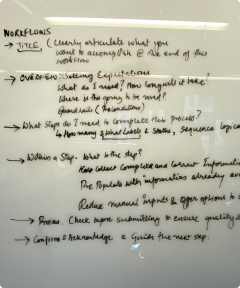 WORKFLOWS
→ TITLE (Clearly articulate what you
want to accomplish @ the end of this
workflow
→ OVERVIEW/Setting Expectations
What do I need? How long will it take?
Where is this going to be used?
Guard rails (
→ What Steps do I need to complete this process?
↳ How many & what Labels & Status, Sequence logical
→ Within a Step. What is the step?
Collect Complete and Correct Informati
Pre Populate with information already av
Reduce manual inputs & offer options to s
→ Preview. Check before submitting to ensure quality
→ Confirm & Acknowledge = Guide the next step.